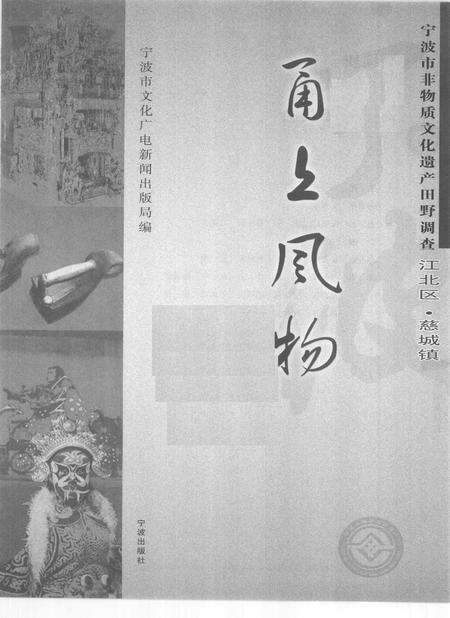 宁波市非物质文化遗产田野调查 江北区·慈城镇
甬上风物
宁波市文化广电新闻出版局编
宁波出版社